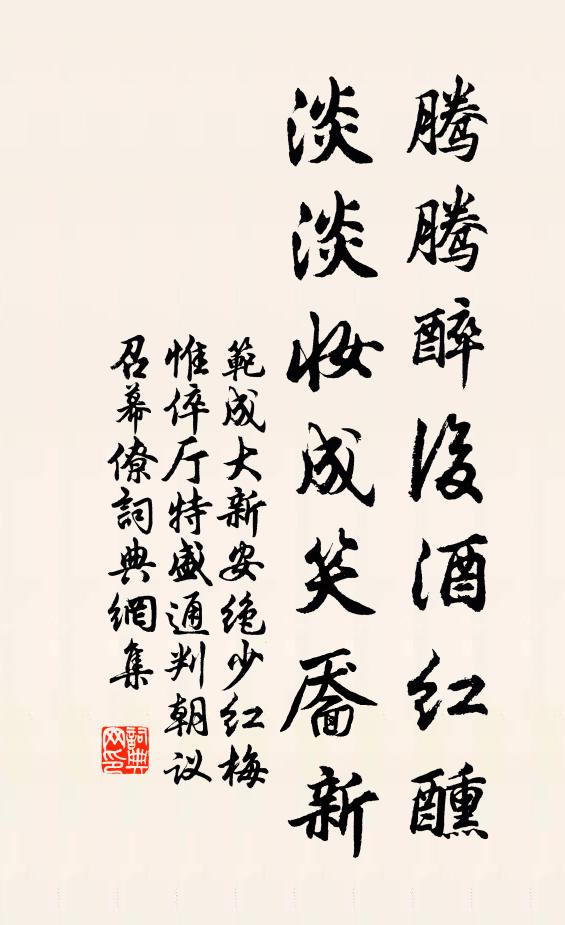 腾腾醉後酒红醺
淡淡妆成笑靥新
範成大新安绝少红梅
惟倅厅特盛通判朝议
召幕僚詞典網集
詞典
网印